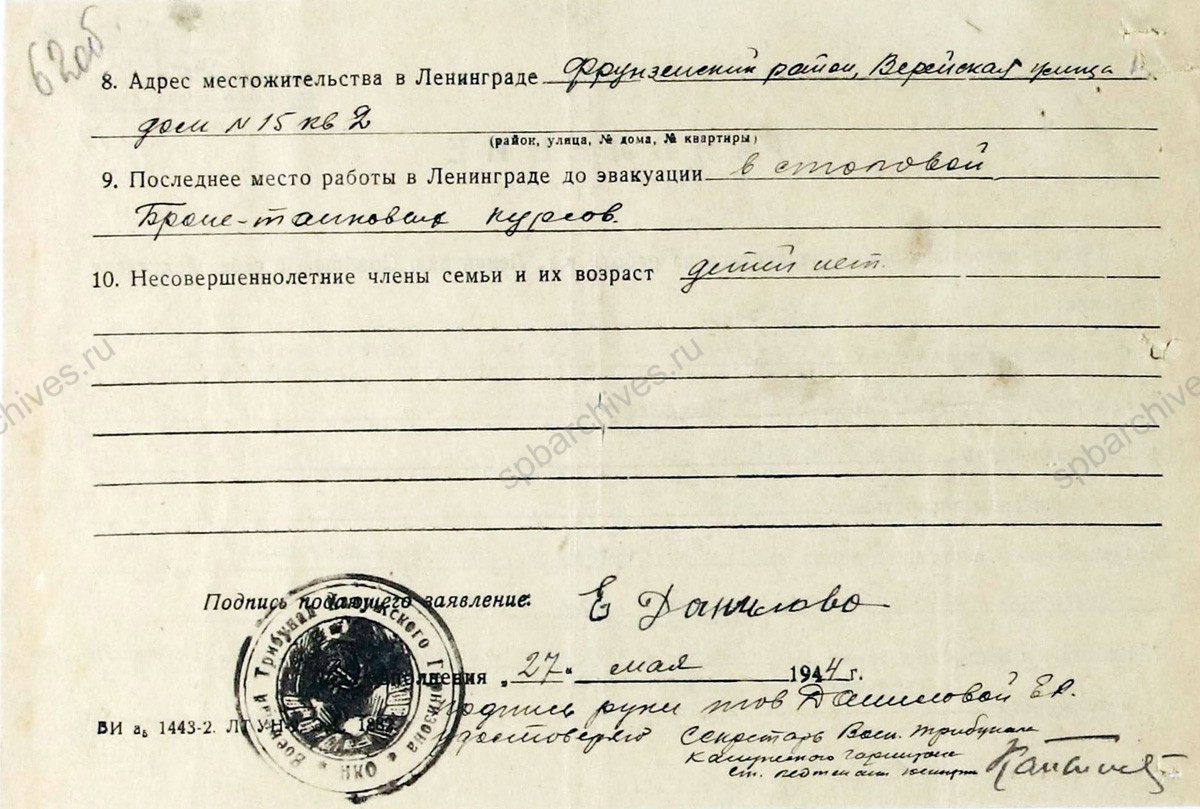 62об.
8. Адрес местожительства в Ленинграде Фрунзенский район, Верейская улица
дом N 15 кв 2
(район, улица, № дома, № квартиры)
9. Последнее место работы в Ленинграде до эвакуации в столовой
Броне-танковых курсов.
10. Несовершеннолетние члены семьи и их возраст детей нет.
spbarchives.ru
spbarchives.ru
spbarchives.ru
Подпись подающего заявление: Е Данилова
Военный Трибунал Калужского Гарнизона * НКО *
„27“ мая 1944 г.
подпись руки тов Даниловой Е.
ВИ аь 1443-2. удостоверяю Секретарь Воен. трибунала
Калужского гарнизона
ст. лейтенант юстиции